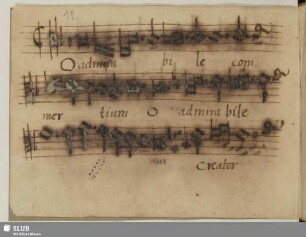 O admira bi le com
mer tium O admirabile
Creator
SLUB